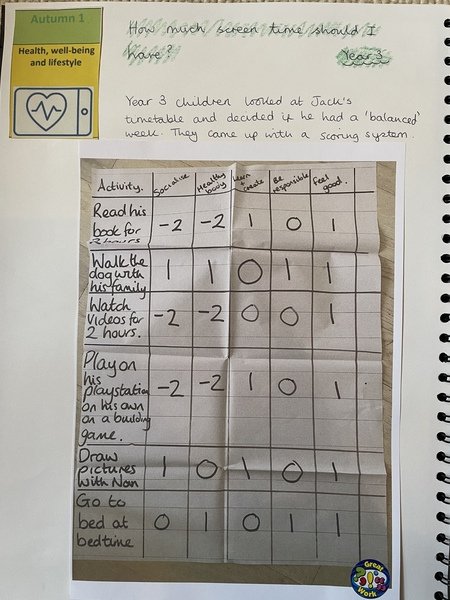 Autumn 1
Health, well-being
and lifestyle
How much screen time should I
have?
Year 3
Year 3 children looked at Jack's
timetable and decided if he had a 'balanced'
week. They came up with a scoring system.
Activity. Socialise Healthy body Learn + create Be responsible feel good.
Read his
book for -2 -2 1 0 1
2 hours
Walk the
dog with 1 1 0 1 1
his family
Watch
Videos for -2 -2 0 0 1
2 hours.
Play on
his
playstation -2 -2 1 0 1
on his own
on a building
game.
Draw
pictures 1 0 1 0 1
with Nan
Go to
bed at 0 1 0 1 1
bedtime
Great
Work